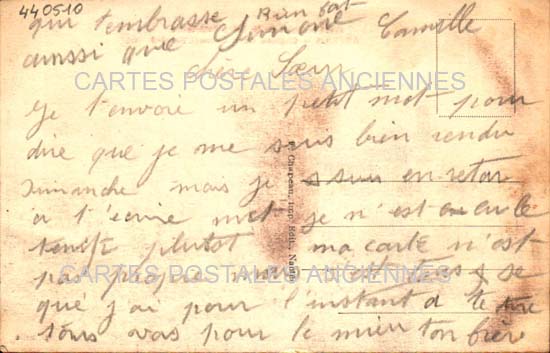 440510
qui t'embrasse Bien fort
ainssi que Simone Camille
chère Sœur
CARTES POSTALES ANCIENNES
Je t'envoie un petit mot pour
dire que je me suis bien rendu
Dimanche mais je suis en retar
a t'écrire mot je n'est eu le
plutot ma carte n'est
pas propre mais c'est se
CARTES POSTALES ANCIENNES
que j'ai pour l'instant a te
tous vas pour le mieu ton frère
Chapeau, Imp. Edit., Nantes